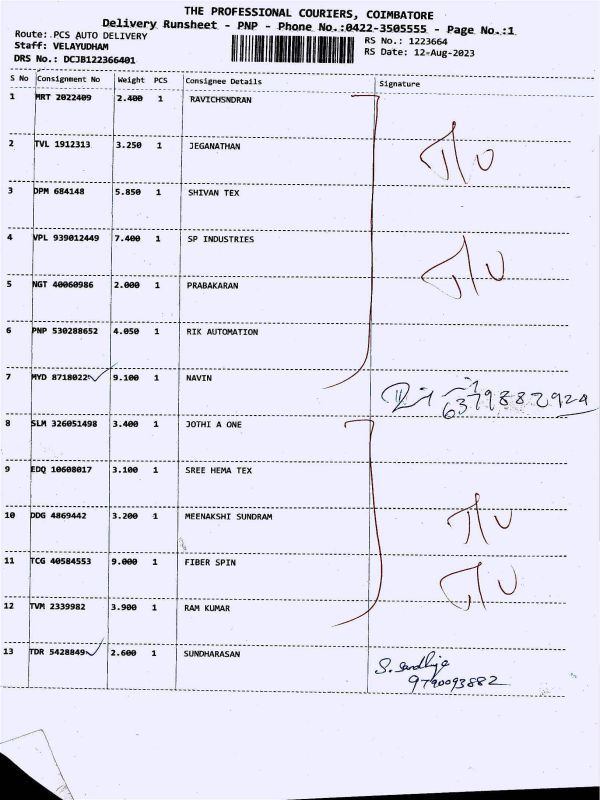 THE PROFESSIONAL COURIERS, COIMBATORE
Delivery Runsheet - PNP - Phone No.:0422-3505555 - Page No.:1
Route: PCS AUTO DELIVERY
RS No.: 1223664
Staff: VELAYUDHAM
RS Date: 12-Aug-2023
DRS No.: DCJB122366401
S No Consignment No Weight PCS Consignee Details Signature
1 MRT 2022409 2.400 1 RAVICHSNDRAN
2 TVL 1912313 3.250 1 JEGANATHAN
3 DPM 684148 5.850 1 SHIVAN TEX
4 VPL 939012449 7.400 1 SP INDUSTRIES
5 NGT 40060986 2.000 1 PRABAKARAN
6 PNP 530288652 4.050 1 RIK AUTOMATION
7 MYD 8718022 9.100 1 NAVIN
6379882924
8 SLM 326051498 3.400 1 JOTHI A ONE
9 EDQ 10608017 3.100 1 SREE HEMA TEX
10 DDG 4869442 3.200 1 MEENAKSHI SUNDRAM
11 TCG 40584553 9.000 1 FIBER SPIN
12 TVM 2339982 3.900 1 RAM KUMAR
13 TDR 5428849 2.600 1 SUNDHARASAN
9790093882